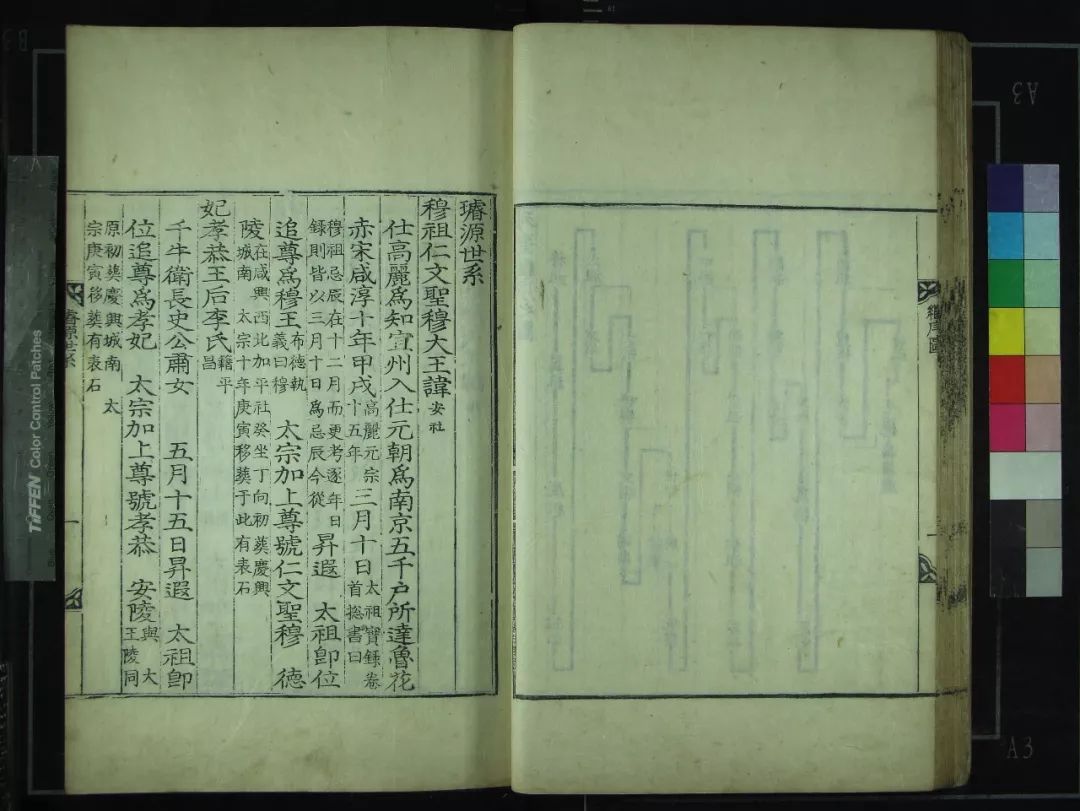 璿源世系
穆祖仁文聖穆大王諱安社
仕高麗爲知宜州入仕元朝爲南京五千户所達魯花
赤宋咸淳十年甲戌高麗元宗十五年三月十日太祖寶錄卷首揔書曰
穆祖忌辰在十二月而更考逐年日錄則皆以三月十日爲忌辰今從昇遐 太祖卽位
追尊爲穆王布德執義曰穆 太宗加上尊號仁文聖穆 德
陵在咸興西北加平社癸坐丁向初葬慶興城南 太宗十年庚寅移葬于此有表石
妃孝恭王后李氏籍平昌
千牛衛長史公肅女 五月十五日昇遐 太祖卽
位追尊爲孝妃 太宗加上尊號孝恭 安陵與大王陵同
原初葬慶興城南 太宗庚寅移葬有表石
璿源世系
一
繼序圖
一
TIFFEN Color Control Patches
A3
A3
B3